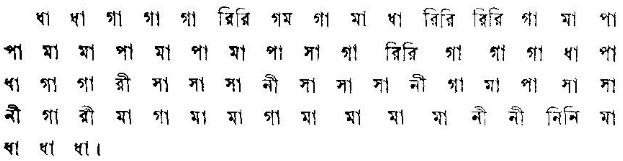 ধা ধা গা গা গা রিরি গম গা মা ধা রিরি রিরি গা মা পা
পা মা মা পা মা পা মা পা সা গা রিরি গা গা গা ধা পা
ধা গা গা রী সা সা সা নী সা সা সা নী গা মা পা সা সা
নী গা রী মা গা মা মা গা মা মা মা মা নী নী নিনি মা
ধা ধা ধা।